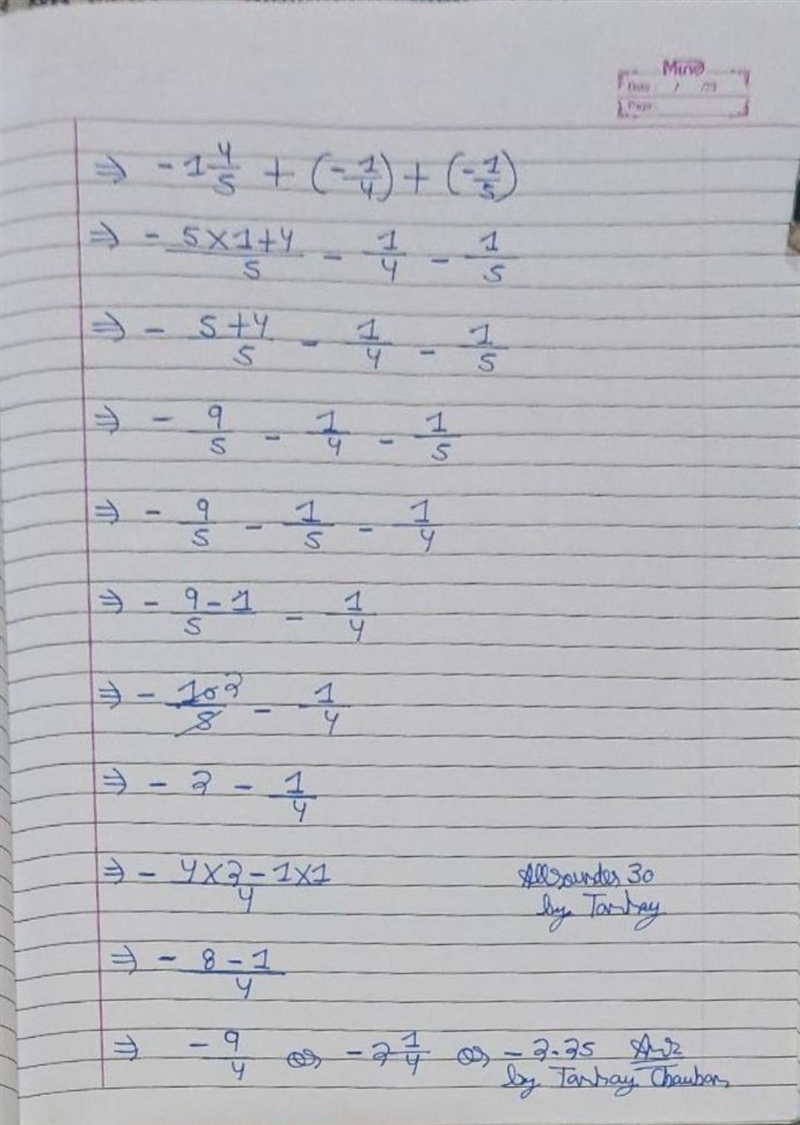 Mind
Date / /20
Page
⇒ -1 4/5 + (-1/4) + (-1/5)
⇒ - 5×1+4/5 - 1/4 - 1/5
⇒ - 5+4/5 - 1/4 - 1/5
⇒ - 9/5 - 1/4 - 1/5
⇒ - 9/5 - 1/5 - 1/4
⇒ - 9-1/5 - 1/4
⇒ - 10 2/5 - 1/4
⇒ - 2 - 1/4
⇒ - 4×2-1×1/4
Allrounder 30
by Tanhay
⇒ - 8-1/4
⇒ -9/4 or -2 1/4 or -2.25 Ans
by Tanhay Chauhan